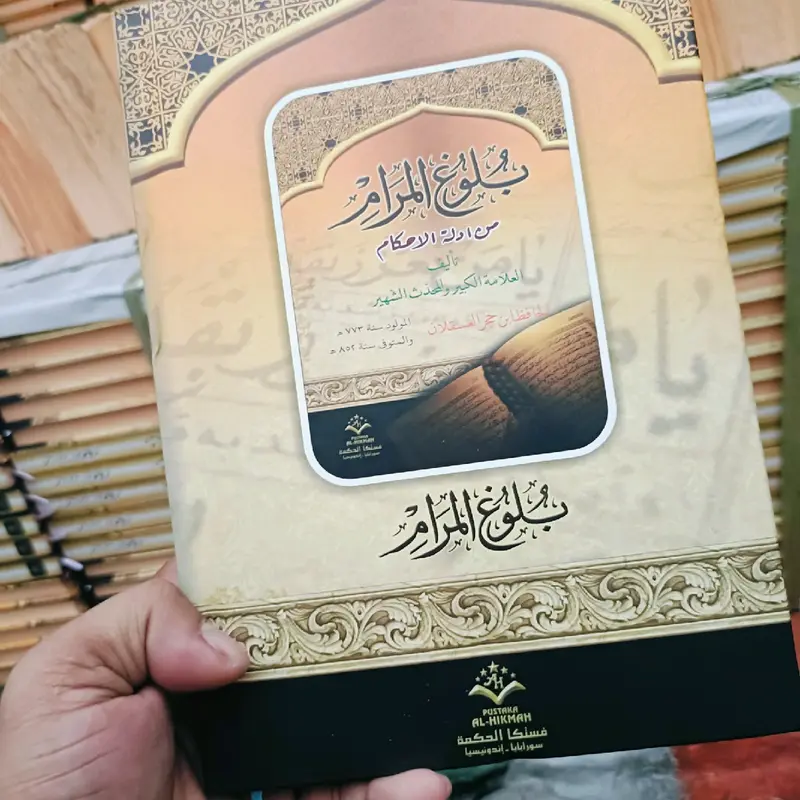 بُلُوغُ المَرَامْ
من ادلة الاحكام
تأليف
العلامة الكبير والمحدث الشهير
الحافظ ابن حجر العسقلان
المولود سنة ٧٧٣ هـ
والمتوفى سنة ٨٥٢ هـ
PUSTAKA
AL-HIKMAH
فستكا الحكمة
سورابايا - إندونيسيا
بُلُوغُ المَرَامْ
AH
PUSTAKA
AL-HIKMAH
فستكا الحكمة
سورابايا - إندونيسيا